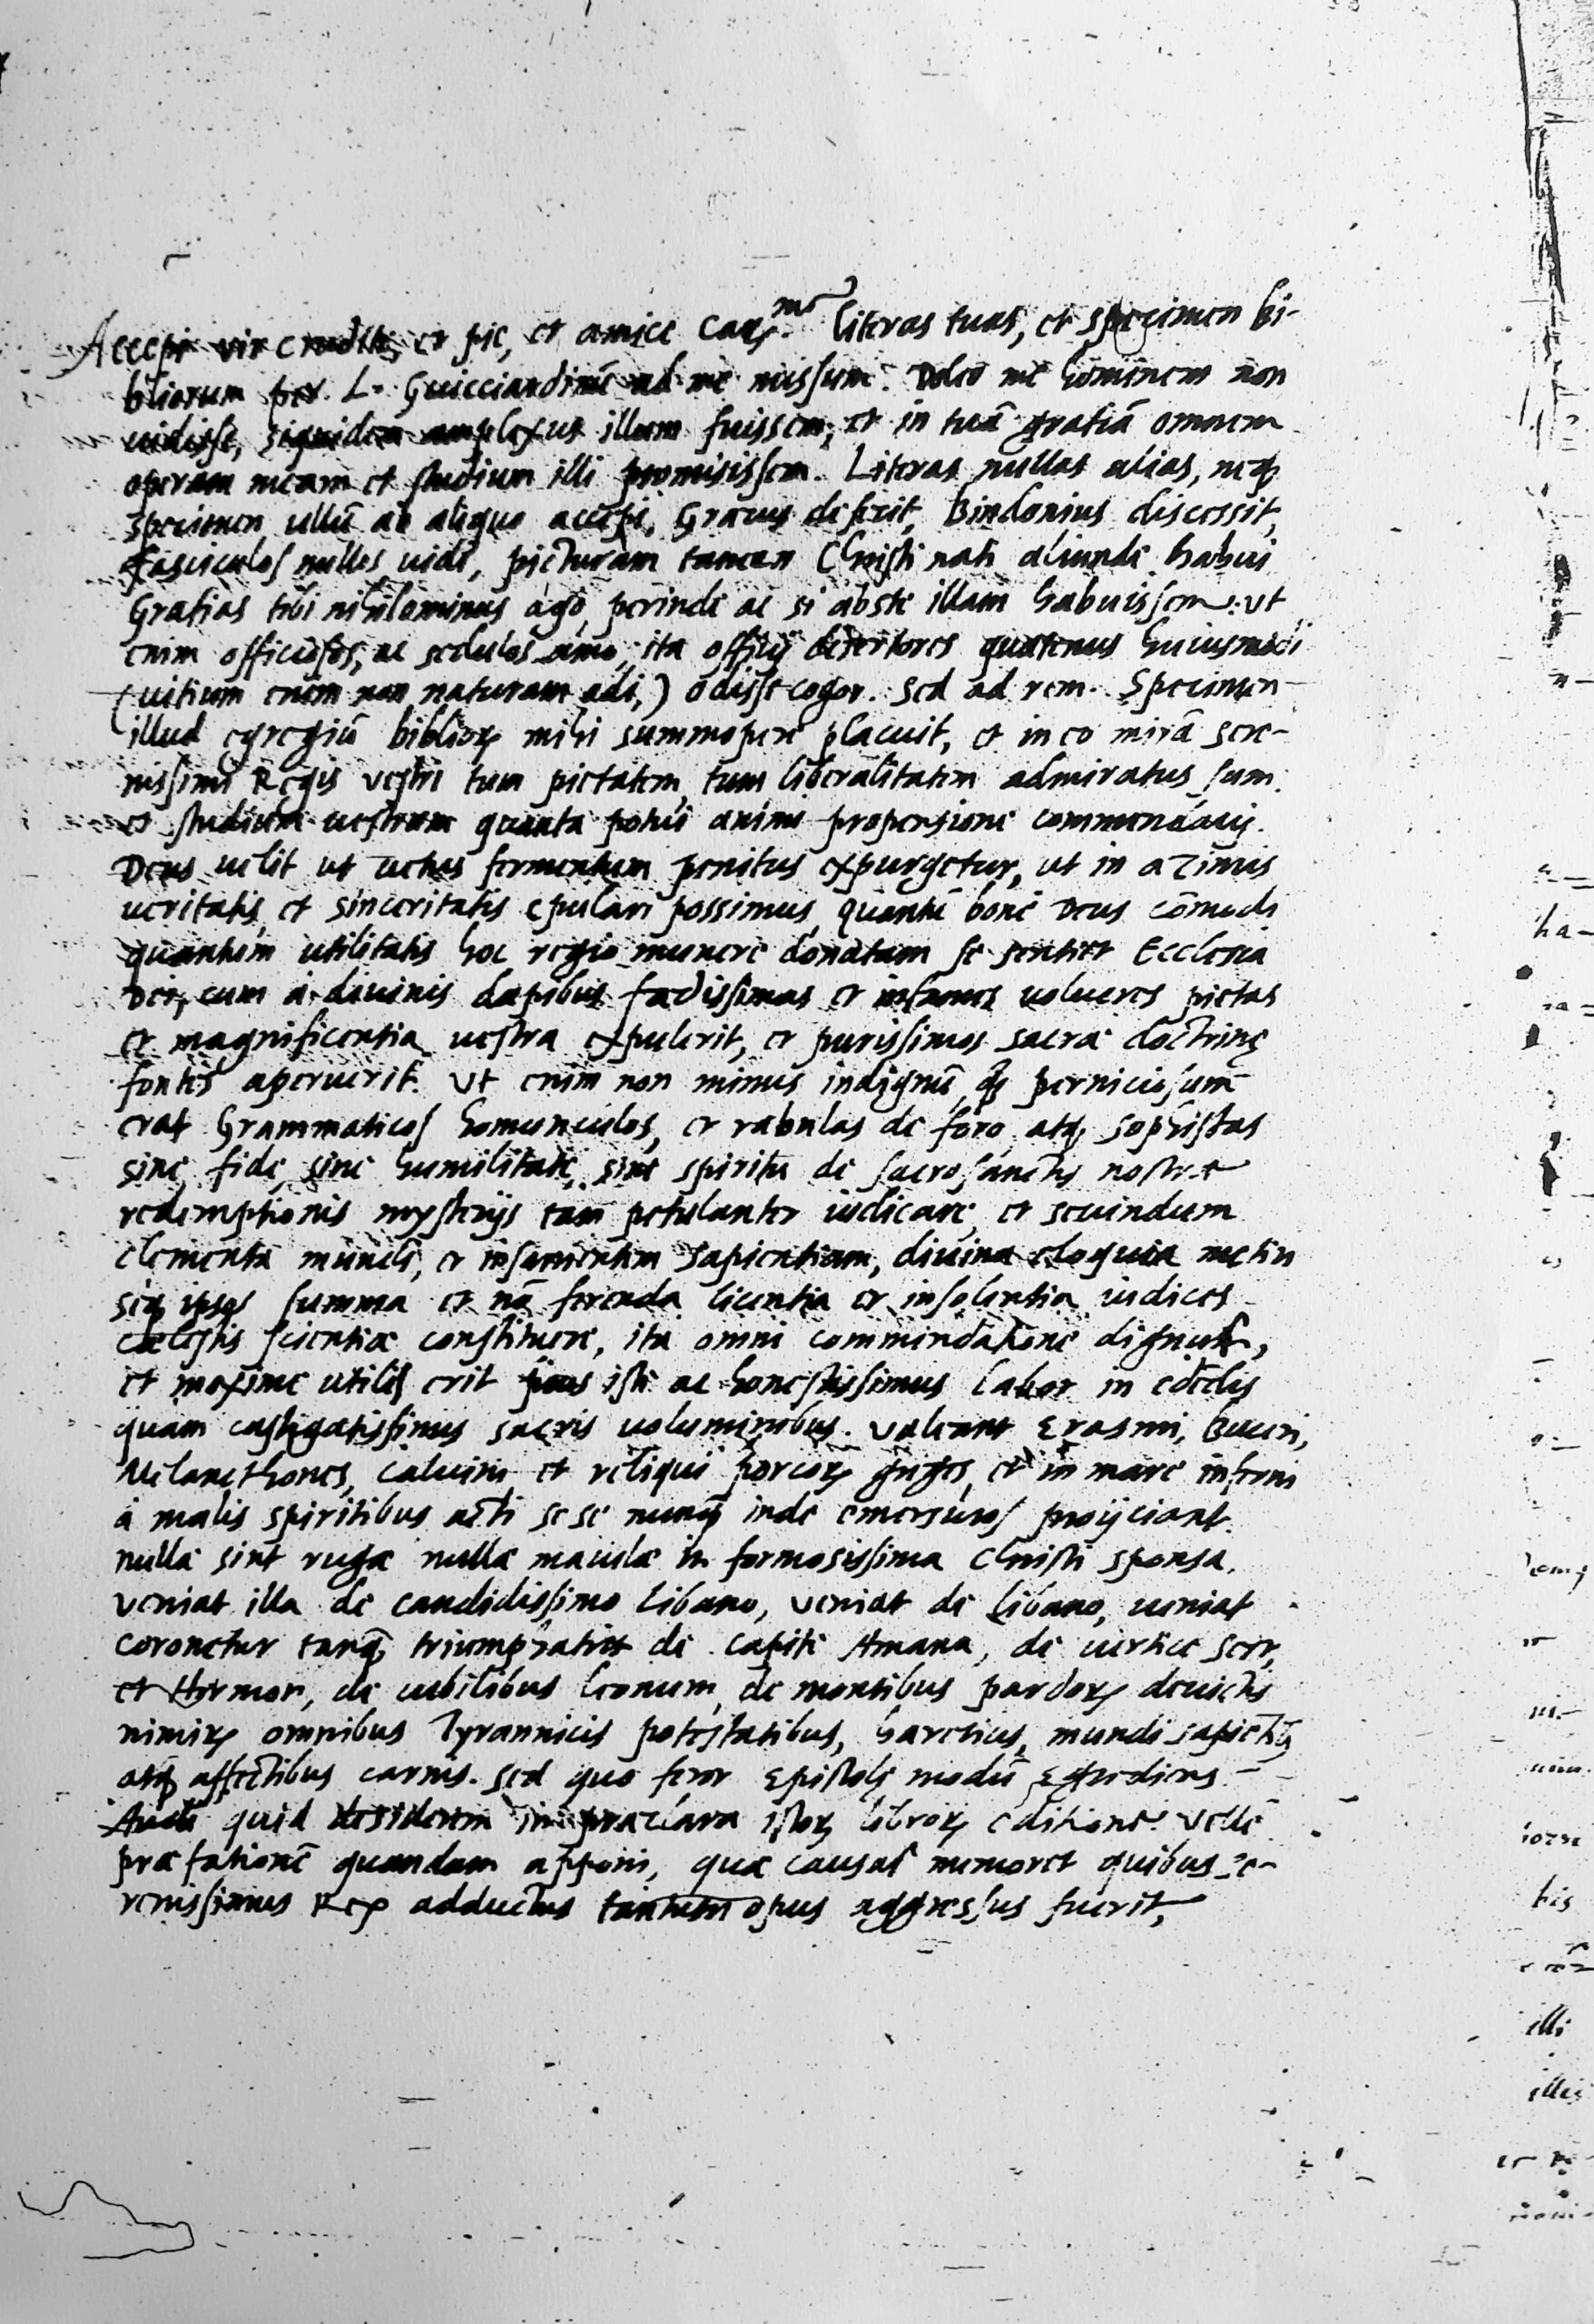 Accepi vir erudite, et pie, et amice Cariss.mo literas tuas, et specimen bi-
bliorum per L. Guicciardinū ad me missum. Doleo me hominem non
uidisse, siquidem amplexus illum fuissem, et in tuā gratiā omnem
operam meam et studium illi promisissem. Literas nullas alias, neqꝫ
specimen ullū ab aliquo accepi, Gravus deserit, Bindonius discessit,
fasciculos nullos uidi, picturam tamen Christi nati aliunde habui
Gratias tibi nihilominus ago, perinde ac si abste illam habuissem: ut
enim officiosos, ac sedulos amo, ita officij desertores quatenus huiusmodi
(uitium enim non naturam odi,) odisse cogor. Sed ad rem. Specimen
illud egregiū bibliorꝝ mihi summopere placuit, et in eo mirā sere-
nissimi Regis vestri tum pietatem, tum liberalitatem admiratus sum.
et studium uestrum quanta potui animi propensione commendavi.
Deus uelit ut uetus fermentum penitus expurgetur, ut in azimis
ueritatis, et sinceritatis epulari possimus, quantū bone Deus cōmodi
quantum utilitatis hoc regio munere donatam se sentiet Ecclesia
Dei, cum à diuinis dapibus fœdissimas et infames uolucres pietas
et magnificentia uestra expulerit, et purissimos sacræ doctrinę
fontes aperuerit. Ut enim non minus indignū, qꝫ perniciosum
erat Grammaticos homunculos, et rabulas de foro, atqꝫ sophistas
sine fide, sine humilitate, sine spiritu de sacrosanctis nostræ
redemptionis mysterijs tam petulanter iudicare, et secundum
elementa mundi, et insanientem sapientiam, diuina eloquia metiri
seqꝫ ipsos summa et nō ferenda licentia et insolentia iudices
cælestis scientiæ constituere, ita omni commendatione dignus,
et maxime utilis erit pius iste ac honestissimus labor in edēdis
quam castigatissimis sacris uoluminibus. Valeant Erasmi, Buceri,
Melancthones, Caluini et reliqui porcorꝝ greges, et in mare inferni
à malis spiritibus acti sese nunqꝫ inde emersuros proijciant.
nullæ sint rugæ nullæ maculæ in formosissima Christi sponsa.
Veniat illa de candidissimo Libano, veniat de Libano, ueniat
coronetur tanqꝫ triumphatrix de capite Amana, de uertice Seir,
et Hermon, de cubilibus leonum, de montibus pardorꝝ deuictis
nimirꝝ omnibus Tyrannicis potestatibus, hæreticis, mundi sapiētijs
atqꝫ affectibus carnis. Sed quo feror Epistolę modū egrediens
Audi quid desiderem in præclara istorꝝ librorꝝ editione. Vellē
præfationē quandam apponi, quæ causas memoret quibus se-
renissimus Rex adductus tantum opus aggressus fuerit,